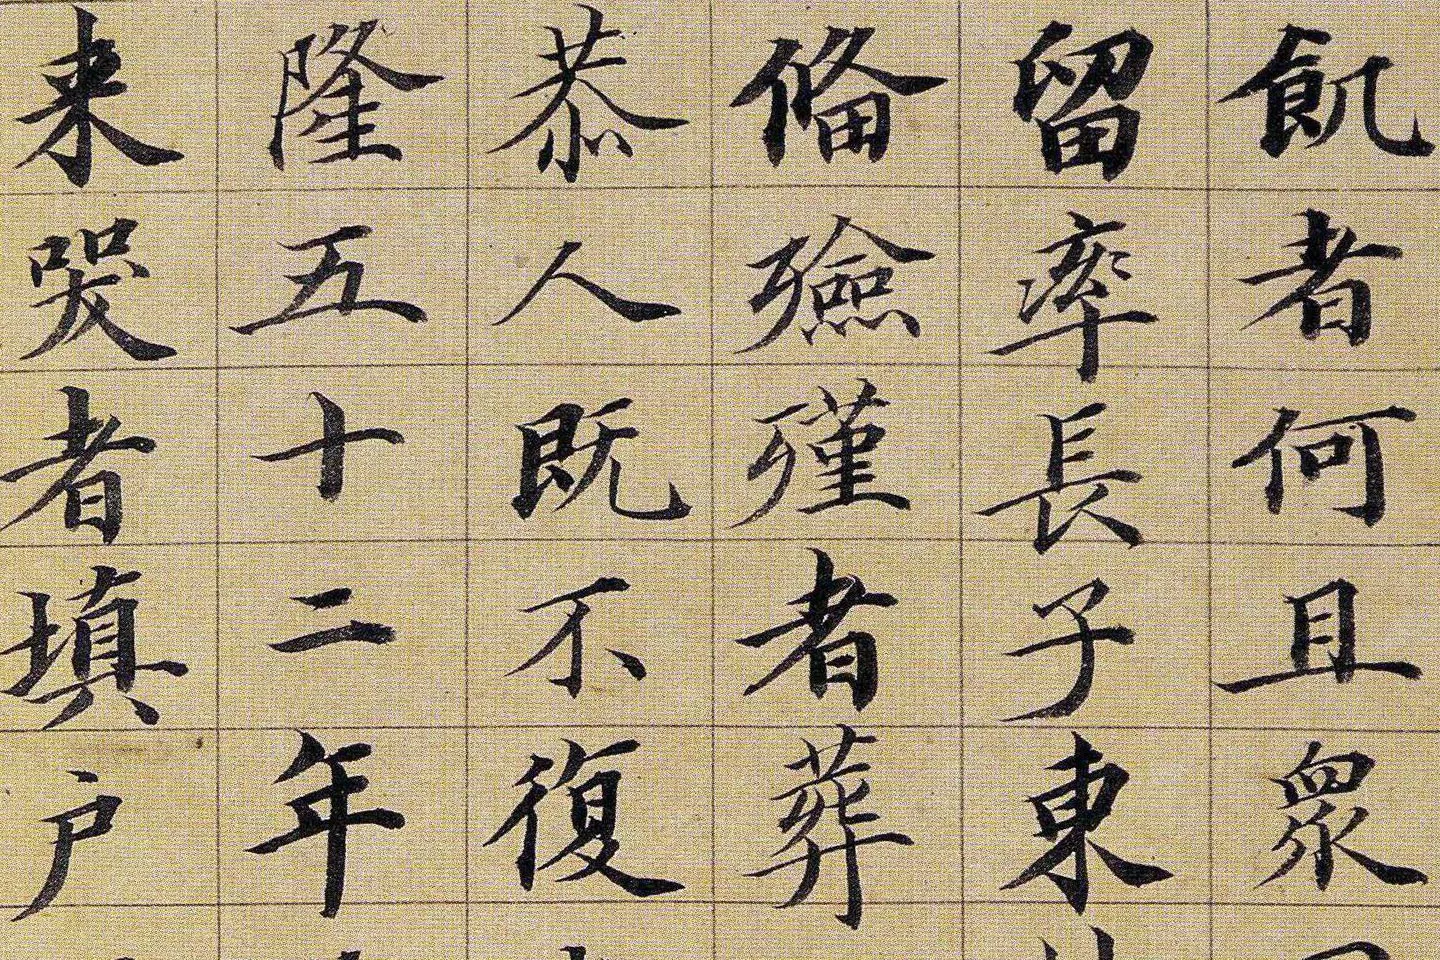 飢者何且眾
留率長子東
俻殮殣者葬
恭人既不復
隆五十二年
来哭者填户